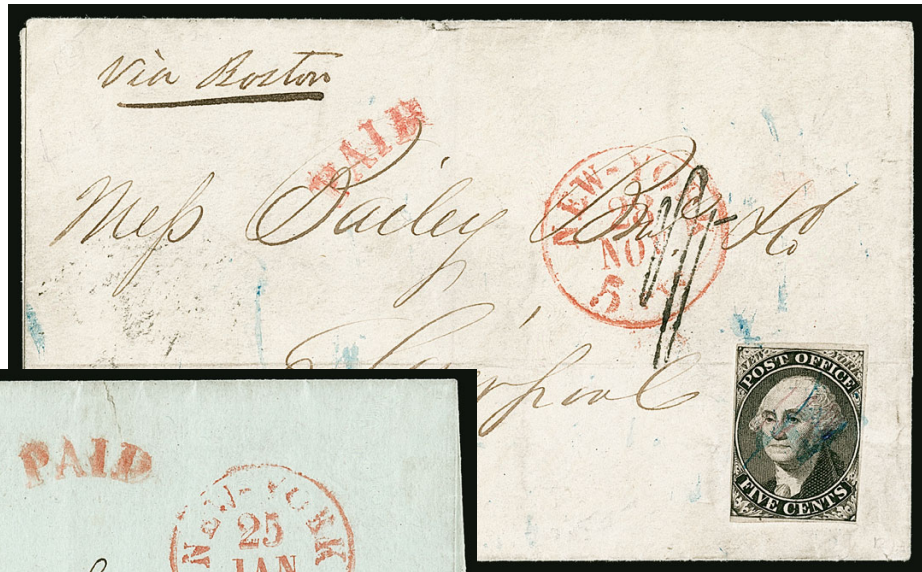 Via Boston
PAID
Mess Bailey Bros & Co
NEW-YORK
28
NOV
5
Liverpool
NEW YORK
POST OFFICE
FIVE CENTS
PAID
NEW-YORK
25
JAN